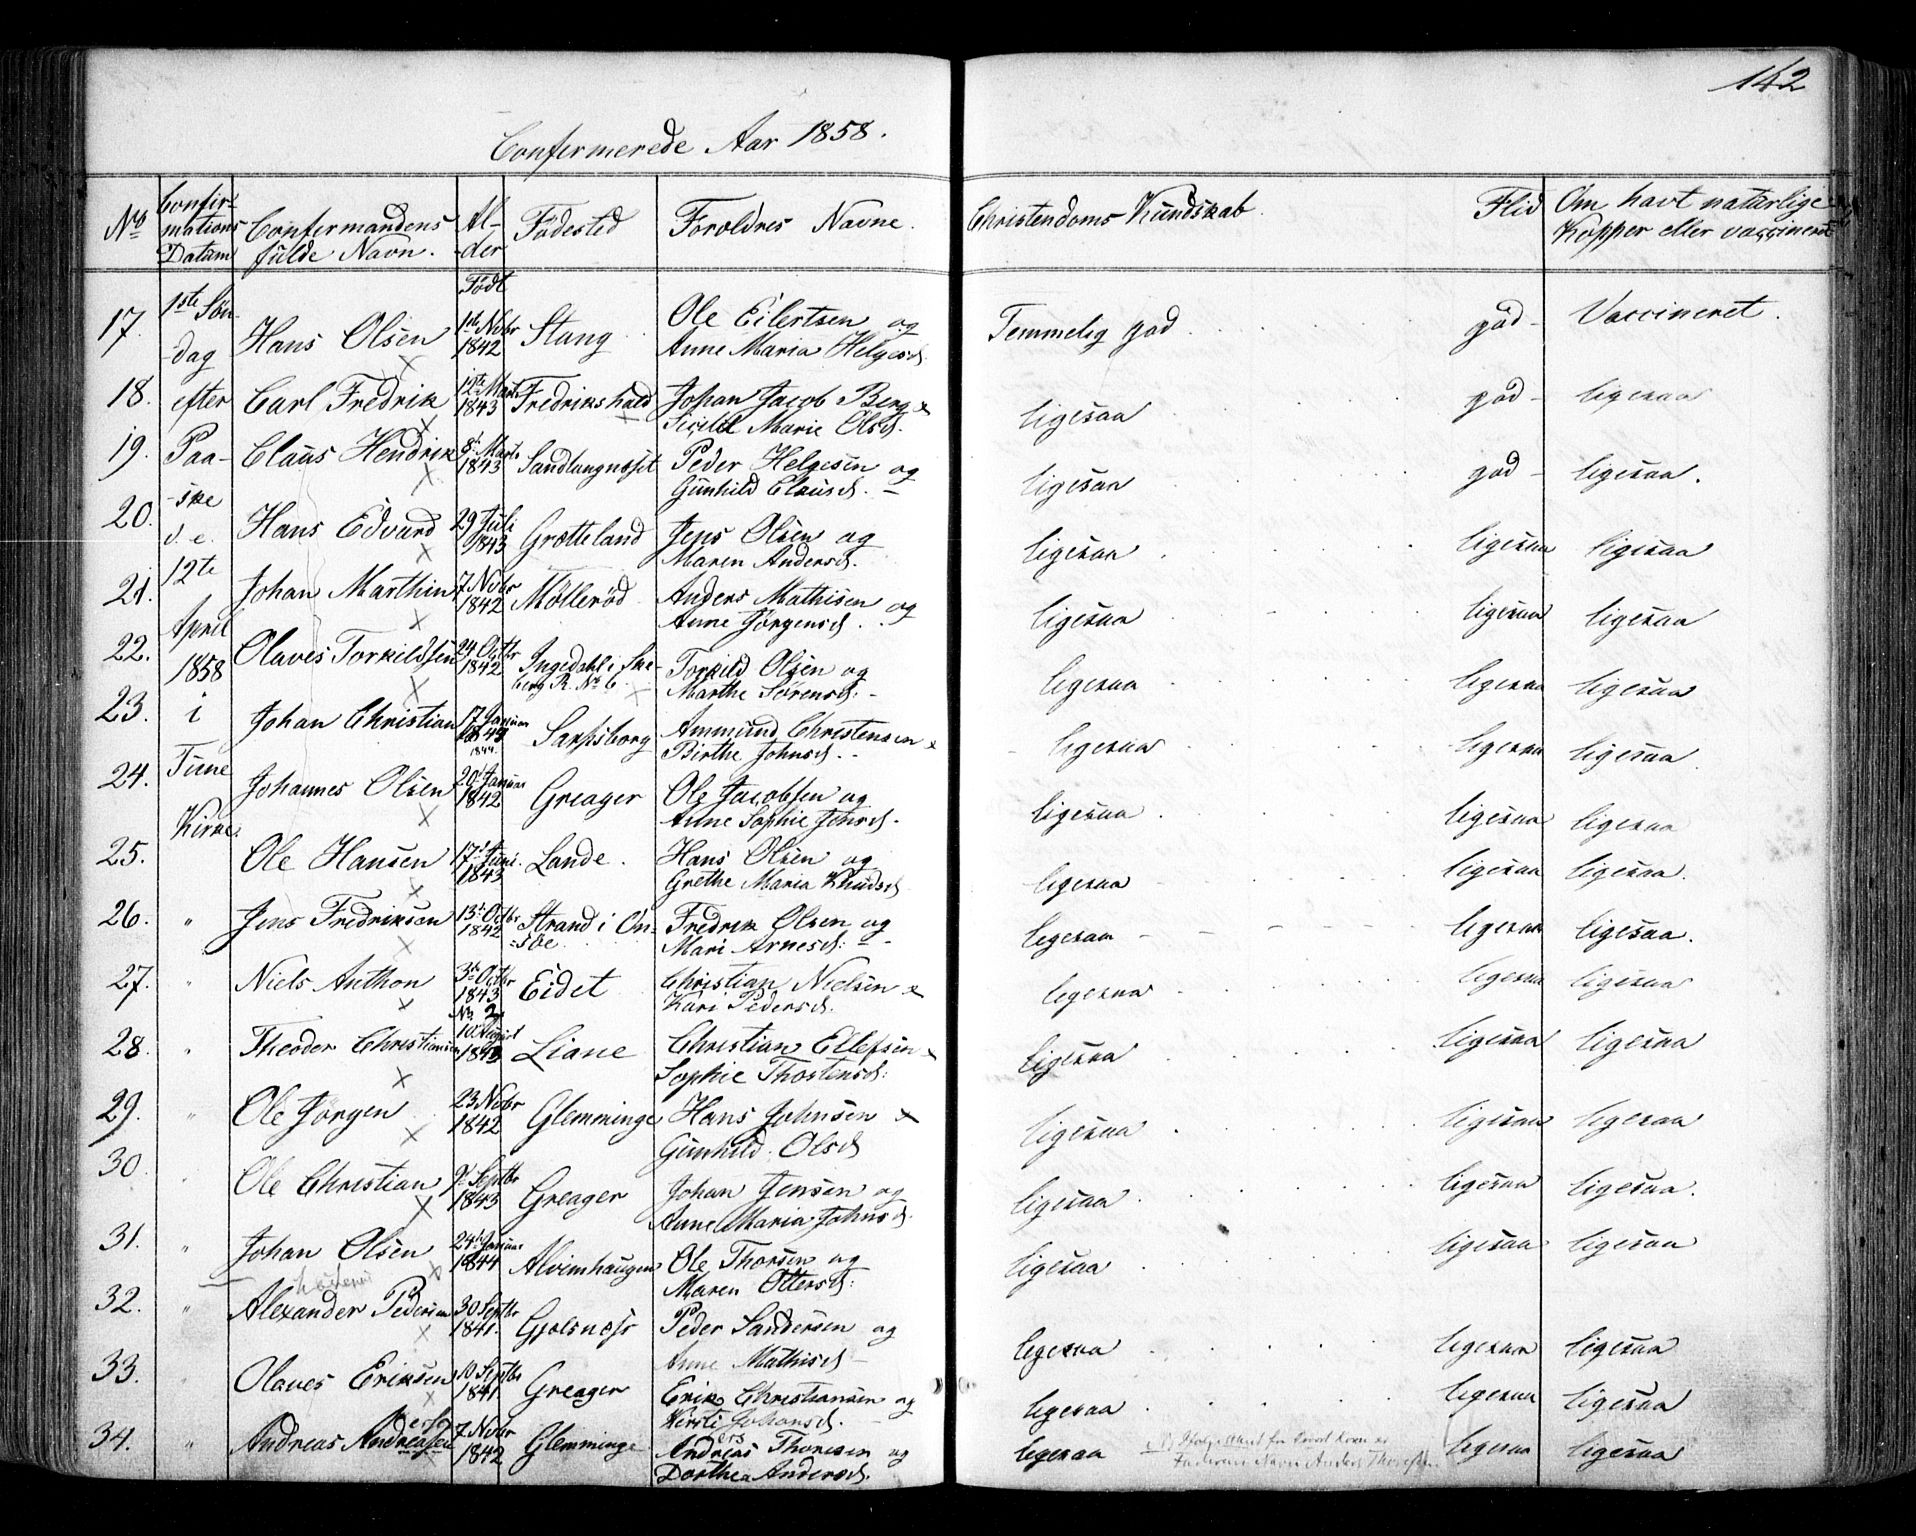 142
Confermerede Aar 1858.
No Confirmations Datum Confermandens fulde Navn. Alder Födested Foroldres Navne. Christendoms Kundskab. Flid Om havt naturlige Kopper eller vaccineret
Födt
17. 1ste Søn- Hans Olsen 1ste Nobr 1842 Stang Ole Eilertsen og Temmelig god god Vaccineret.
-dag Anne Maria Helgesd.
18. efter Carl Fredrik 12te Marts 1843 Fredrikshald Johan Jacob Berg & ligesaa god ligesaa
Marie Olsd.
19. Paa- Claus Hendrik 8de Marts 1843 Peder Helgesen og ligesaa god ligesaa.
-ske Gunhild Clausd.
20. d. e. Hans Edvard 29 Juli 1843 Grøtteland Jens Olsen og ligesaa ligesaa ligesaa
12te Maren Andersd.
21. Johan Marthin 7 Nobr 1842 Møllerød Anders Mathisen og ligesaa ligesaa ligesaa
April Anne Jörgensd.
22. 1858 Olaves Torkildssen 24 Octbr 1842 Ingedahl i Ske- Torkild Olsen og ligesaa ligesaa ligesaa
berg R. No 6. Marthe Sörensd.
23. i Johan Christian 17 Januar 1843 Sarpsborg Ammund Christensen & ligesaa ligesaa ligesaa
1844. Birthe Johnsd.
24. Tune Johannes Olsen 20 Januar 1842 Greager Ole Jacobsen og ligesaa ligesaa ligesaa
Kirke. Anne Sophie Jensd.
25. Ole Hansen 17 Juni 1843 Lande. Hans Olsen og ligesaa ligesaa ligesaa.
Grethe Maria Knudsd.
26. " Jens Fredriksen 13 Octbr 1842 Strand i On- Fredrik Olsen og ligesaa ligesaa ligesaa.
=söe Mari Arnesd:
27. " Niels Anthon 3 Octbr 1843 Eidet Christian Nielsen & ligesaa ligesaa ligesaa
Kari Pedersd.
28. " Theodor Christiansen 10 August 1843 Liane Christian Ellefsen & ligesaa ligesaa ligesaa
Sophie Thostensd:
29. " Ole Jörgen 23 Nobr 1842 Glemminge Hans Johnsen & ligesaa ligesaa ligesaa
Gunhild Olsd
30. " Ole Christian 9 Septbr 1843 Greager Johan Jensen og ligesaa ligesaa ligesaa.
Anne Maria Johnsd.
31. " Johan Olsen 24 Januar 1844 Alvimhaugen Ole Thorsen og ligesaa ligesaa ligesaa
Maren Ottersd:
32. " Alexander Pedersen 30 Septbr 1841. Gjolsnæss Peder Sandersen og ligesaa ligesaa ligesaa
Anne Mathisd
33. " Olaves Eriksen 10 Septbr 1841 Greager Erik Christiansen og ligesaa ligesaa ligesaa
Kersti Johansd.
34. " Andreas Andreasen 7 Nobr 1842 Glemminge Andreas Thoresen og ligesaa ligesaa ligesaa
Dorthea Andersd.
Faderens Navn Anders Thoresen